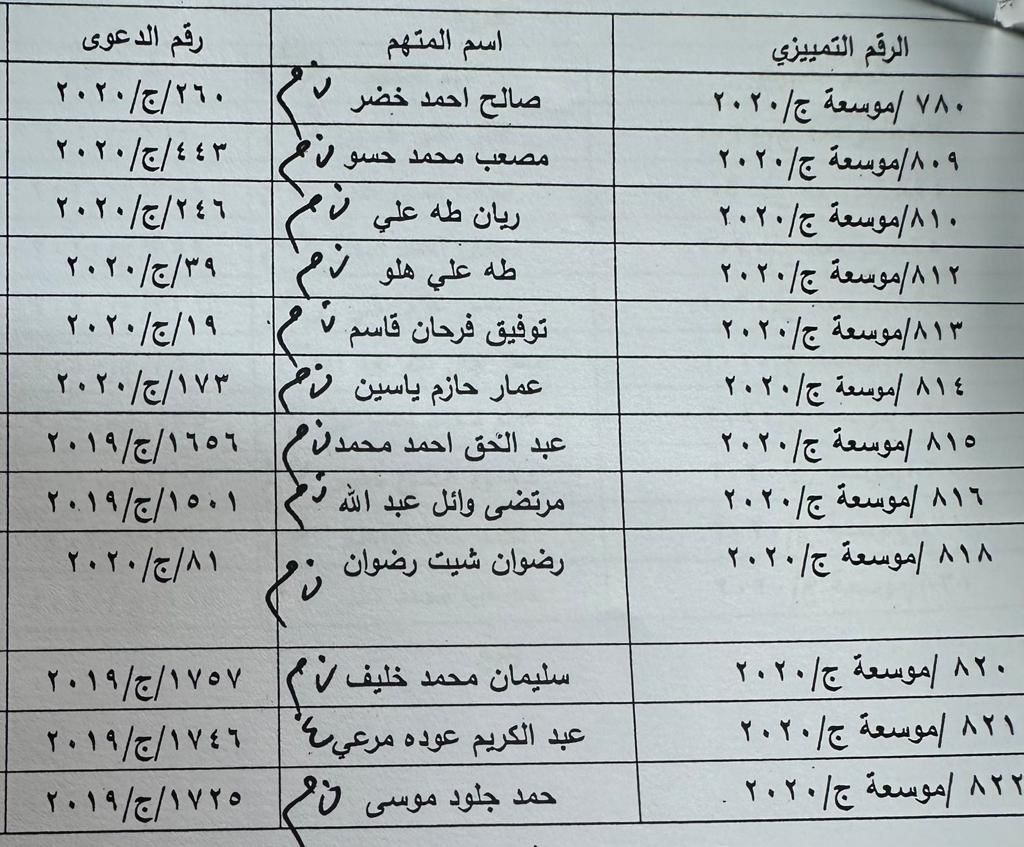 الرقم التمييزي اسم المتهم رقم الدعوى
٧٨٠ /موسعة ج/٢٠٢٠ صالح احمد خضر ٢٦٠/ج/٢٠٢٠
٨٠٩/موسعة ج/٢٠٢٠ مصعب محمد حسو ٤٤٣/ج/٢٠٢٠
٨١٠/موسعة ج/٢٠٢٠ ريان طه علي ٢٤٦/ج/٢٠٢٠
٨١٢/موسعة ج/٢٠٢٠ طه علي هلو ٣٩/ج/٢٠٢٠
٨١٣/موسعة ج/٢٠٢٠ توفيق فرحان قاسم ١٩/ج/٢٠٢٠
٨١٤ /موسعة ج/٢٠٢٠ عمار حازم ياسين ١٧٣/ج/٢٠٢٠
٨١٥ /موسعة ج/٢٠٢٠ عبد الحق احمد محمد ١٦٥٦/ج/٢٠١٩
٨١٦ /موسعة ج/٢٠٢٠ مرتضى وائل عبد الله ١٥٠١/ج/٢٠١٩
٨١٨ /موسعة ج/٢٠٢٠ رضوان شيت رضوان ٨١/ج/٢٠٢٠
٨٢٠ /موسعة ج/٢٠٢٠ سليمان محمد خليف ١٧٥٧/ج/٢٠١٩
٨٢١ /موسعة ج/٢٠٢٠ عبد الكريم عوده مرعي ١٧٤٦/ج/٢٠١٩
٨٢٢ /موسعة ج/٢٠٢٠ حمد جلود موسى ١٧٢٥/ج/٢٠١٩